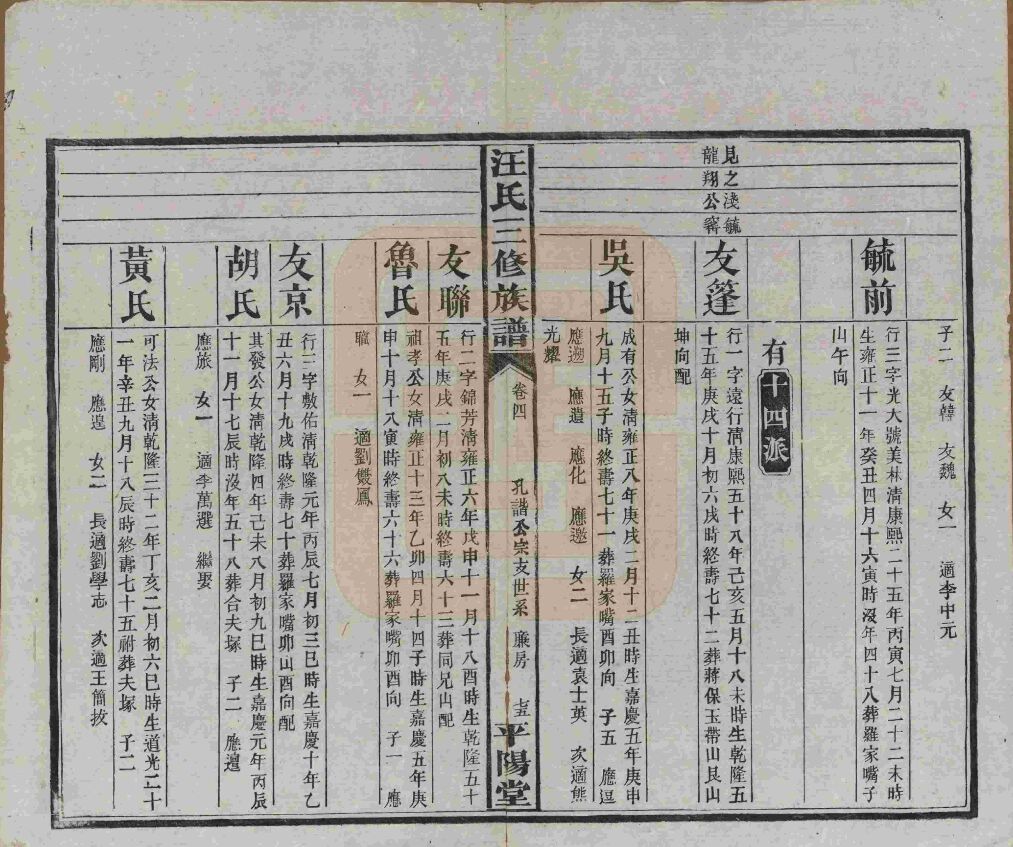 子二　友韓　友魏　女一　適李中元
毓前
行三字光大號美林清康熙二十五年丙寅七月二十二未時
生雍正十一年癸丑四月十六寅時沒年四十八葬羅家嘴子
山午向
有十四派
見之淺毓
龍翔公籌
友篷
行一字遠行清康熙五十八年己亥五月十八未時生乾隆五
十五年庚戌十月初六戌時終壽七十二葬蔣保玉帶山艮山
坤向配
吳氏
成有公女清雍正八年庚戌二月十二丑時生嘉慶五年庚申
九月十五子時終壽七十一葬羅家嘴酉卯向　子五　應逗
應遡　應遺　應化　應邀　女二　長適袁士英　次適熊
光耀
汪氏三修族譜
卷四　孔譜公宗支世系　廉房　十五
平陽堂
友聯
行二字錦芳清雍正六年戊申十一月十八酉時生乾隆五十
五年庚戌二月初八未時終壽六十三葬同兄山配
魯氏
祖孝公女清雍正十三年乙卯四月十四子時生嘉慶五年庚
申十月十八寅時終壽六十六葬羅家嘴卯酉向　子一　應
曠　女一　適劉鳳
友京
行三字敷佑清乾隆元年丙辰七月初三巳時生嘉慶十年乙
丑六月十九戌時終壽七十葬羅家嘴卯山酉向配
胡氏
其發公女清乾隆四年己未八月初九巳時生嘉慶元年丙辰
十一月十七辰時沒年五十八葬合夫塚　子二　應邅
應旅　女一　適李萬選　繼娶
黃氏
可法公女清乾隆三十二年丁亥二月初六巳時生道光二十
一年辛丑九月十八辰時終壽七十五祔葬夫塚　子二
應剛　應遑　女二　長適劉學志　次適王簡拔